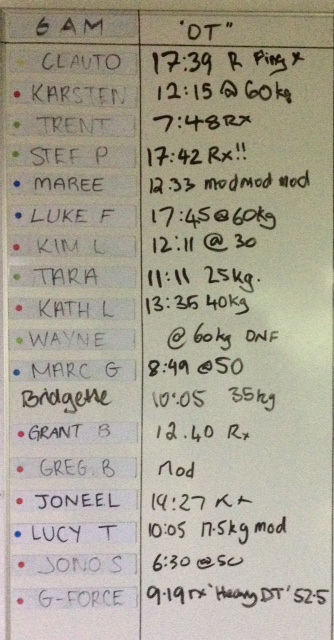 6 AM "DT"
CLAUTO 17:39 R Ping x
KARSTEN 12:15 @ 60kg
TRENT 7:48 Rx
STEF P 17:42 Rx!!
MAREE 12:33 modmod mod
LUKE F 17:45 @ 60kg
KIM L 12:11 @ 30
TARA 11:11 25kg.
KATH L 13:35 40kg
WAYNE @ 60kg DNF
MARC G 8:49 @50
Bridgette 10:05 35kg
GRANT B 12.40 Rx
GREG B Mod
JONEEL 14:27 Rx
LUCY T 10:05 17.5kg mod
JONO S 6:30 @50
G-FORCE 9.19 rx 'Heavy DT' 52.5